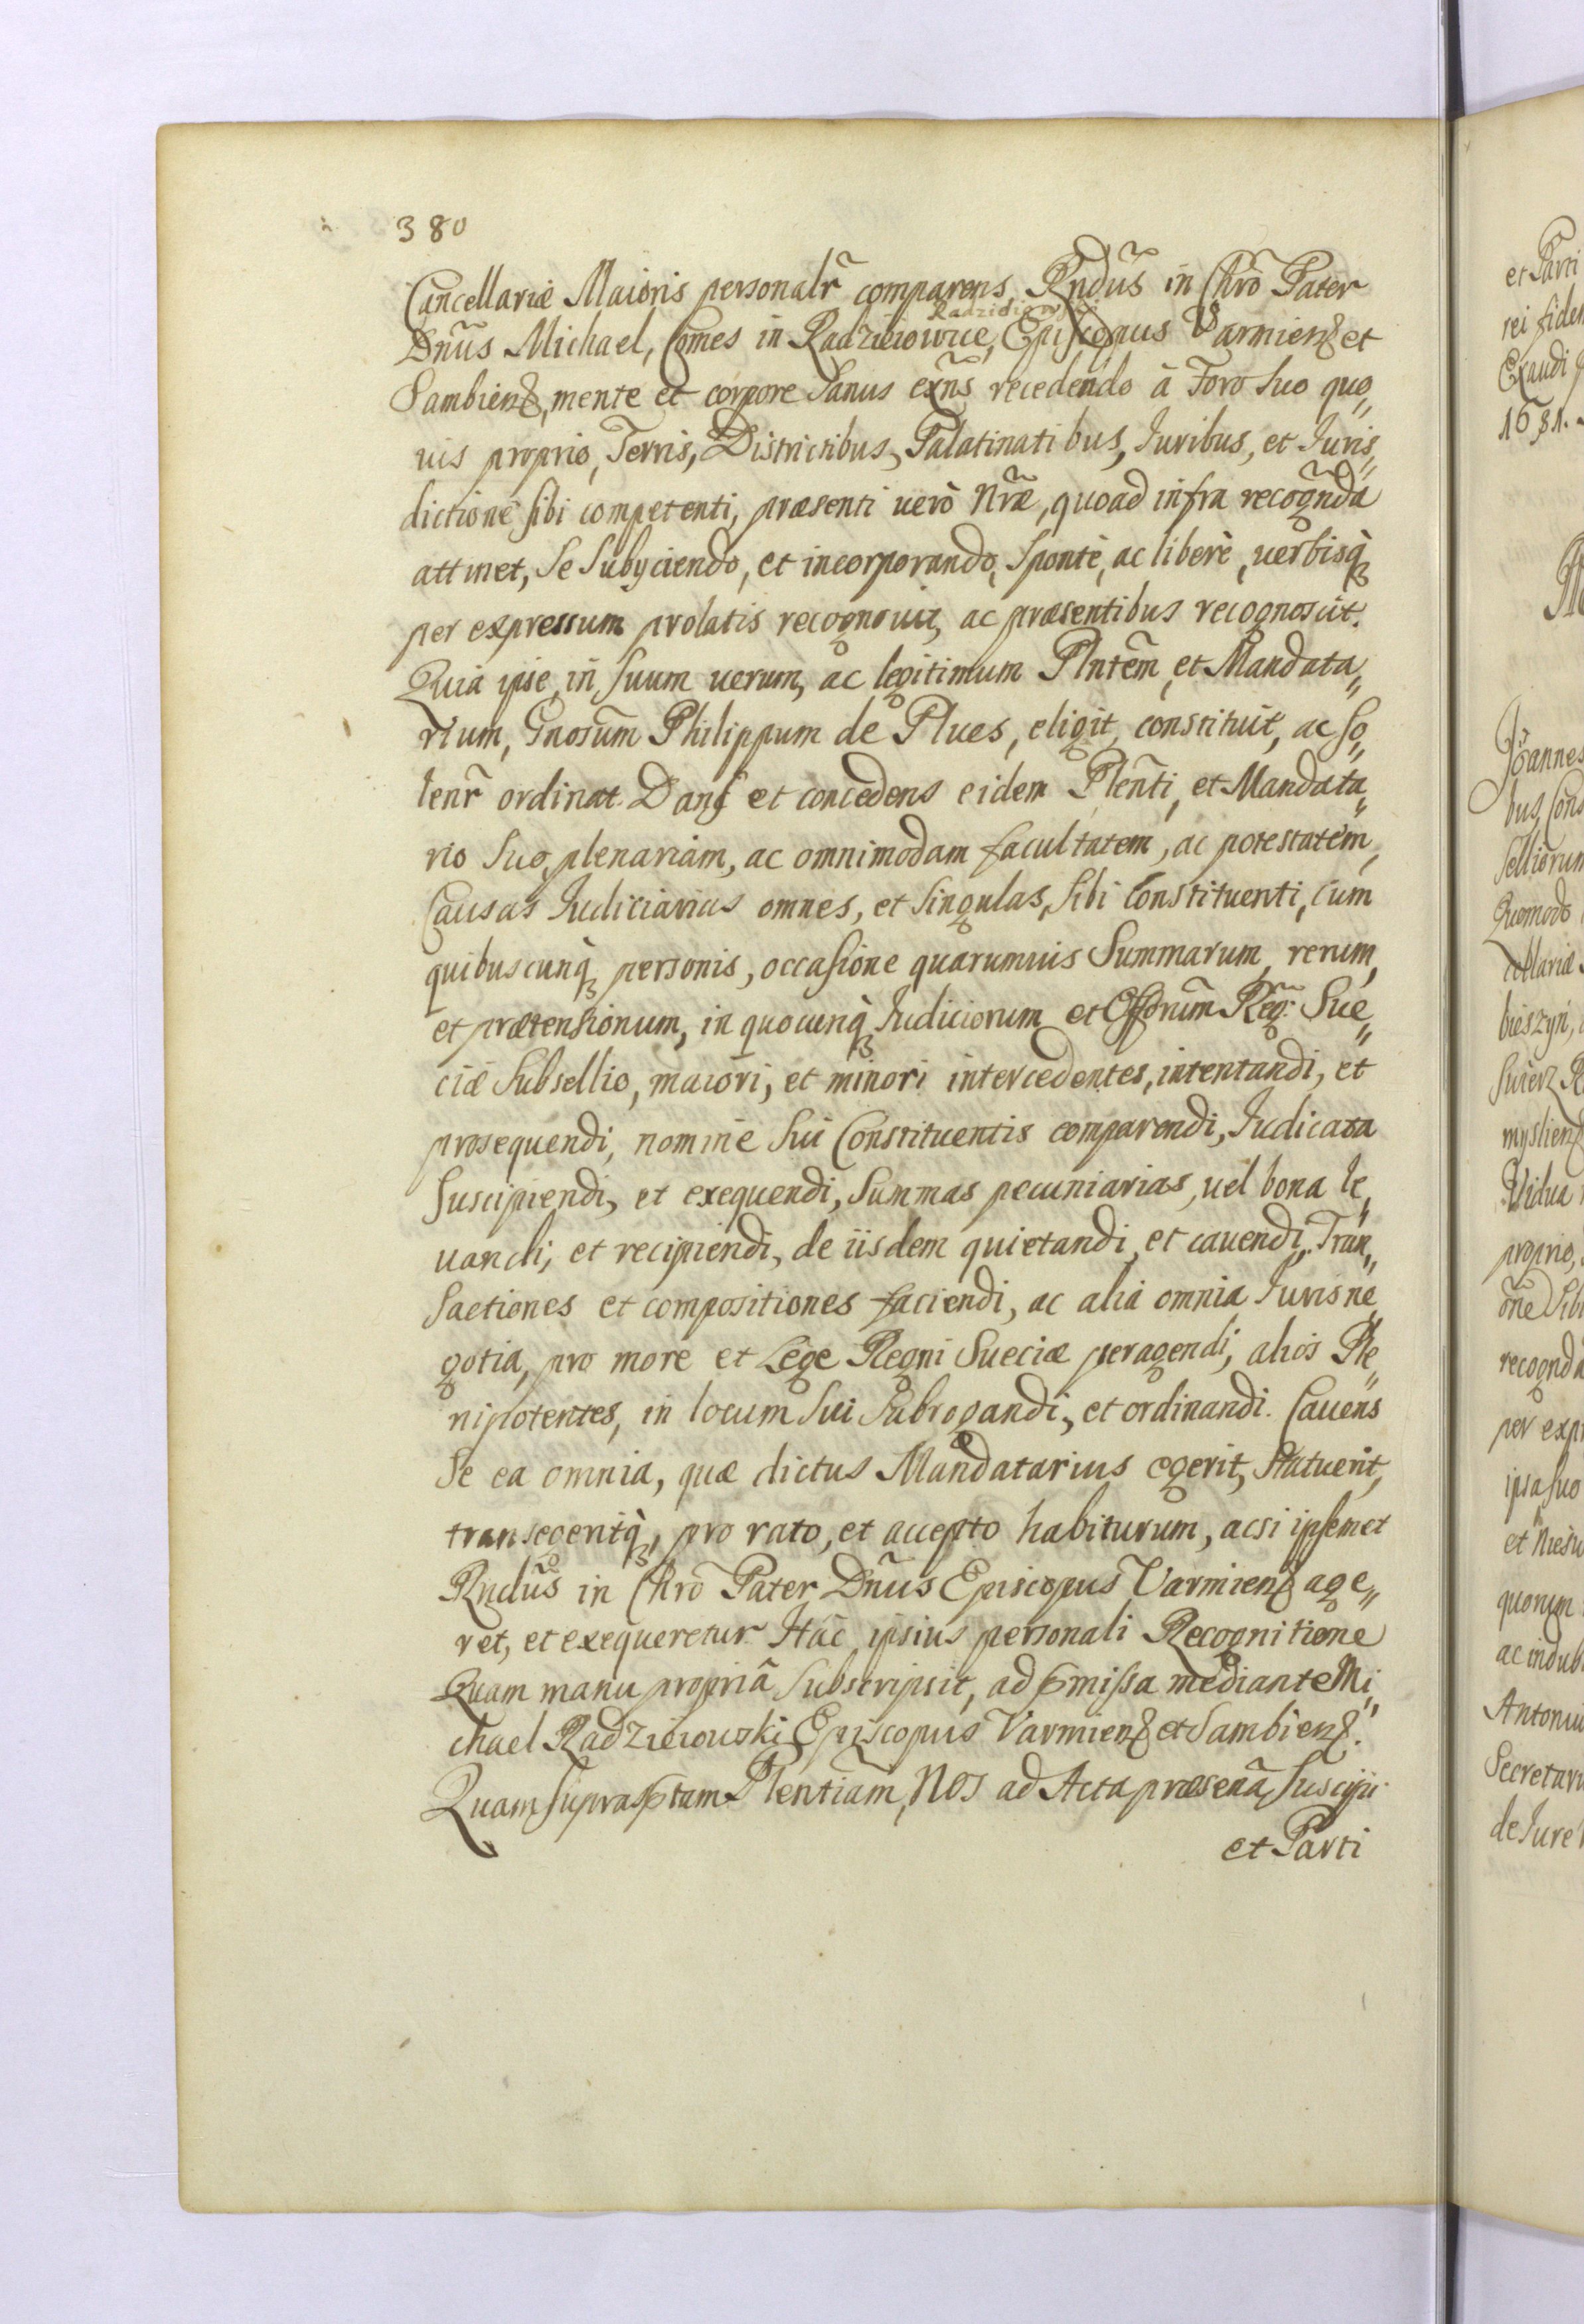 380
Cancellariæ Maioris personalr̃ comparens, Rndũs in Chrõ Pater
Radzieiowski
Dnũs Michael, Comes in Radzieiowice, Episcopus Varmiens et
Sambiens, mente et corpore Sanus exñs recedendo à Foro Suo quo„
uis proprio, Terris, Districtibus, Palatinatibus, Iuribus, et Iuris„
dictione sibi competenti, præsenti uerò Nrãe, quoad infra recognd̃a
attinet, Se Subyciendo, et incorporando, Spontè, ac liberè, uerbisq̀
per expressum prolatis recognouit, ac præsentibus recognoscit.
Quia ipse, in Suum uerum, ac legitimum Plntẽm, et Mandata„
rium, Gnosũm Philippum de Plues, eligit, constituit, ac So„
lenr̃ ordinat. Dans et concedens eidem Plẽnti, et Mandata„
rio Suo, plenariam, ac omnimodam facultatem, ac potestatem,
Causas Iudiciarias omnes, et Singulas, Sibi Constituenti, cum
quibuscunq̀ personis, occasione quarumuis Summarum, rerum,
et prætensionum, in quocunq̀ Iudiciorum et Offiorũm Reg: Sue„
ciæ Subsellio, maiori, et minori intercedentes, intentandi, et
prosequendi, nomine Sui Constituentis comparendi, Iudicata
Suscipiendi, et exequendi, Summas pecuniarias, uel bona le„
uandi, et recipiendi, de iisdem quietandi, et cauendi, Tran„
Sactiones et compositiones faciendi, ac alia omnia Iuris ne„
gotia, pro more et Lege Regni Sueciæ peragendi, alios Ple„
nipotentes, in locum Sui Subrogandi, et ordinandi. Cauens
Se ea omnia, quæ dictus Mandatarius egerit, Statuerit,
transegeritq̀, pro rato, et accepto habiturum, acsi ipsemet
Rndũs in Chrõ Pater Dnũs Episcopus Varmiens age„
ret, et exequeretur. Hac ipsius personali Recognitione
Quam manu propriâ Subscripsit, ad pmissa mediante Mi„
chael Radzieiouski Episcopus Varmiens et Sambiens.
Quam supraSptam Plentiãm, Nos ad Acta præsenã, Suscipi
et Parti